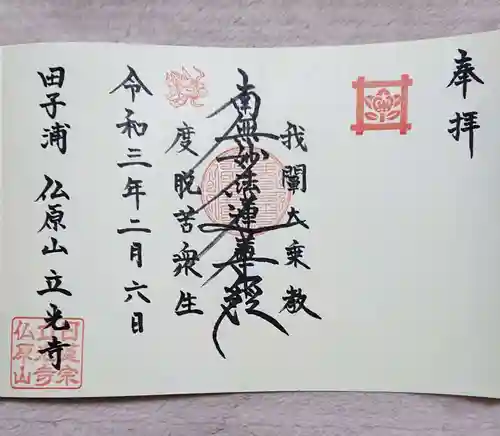 奉拝
我闡大乗教
南無妙法蓮華経
度脱苦衆生
令和三年二月六日
田子浦 仏原山 立光寺
日蓮宗
立光寺
仏原山